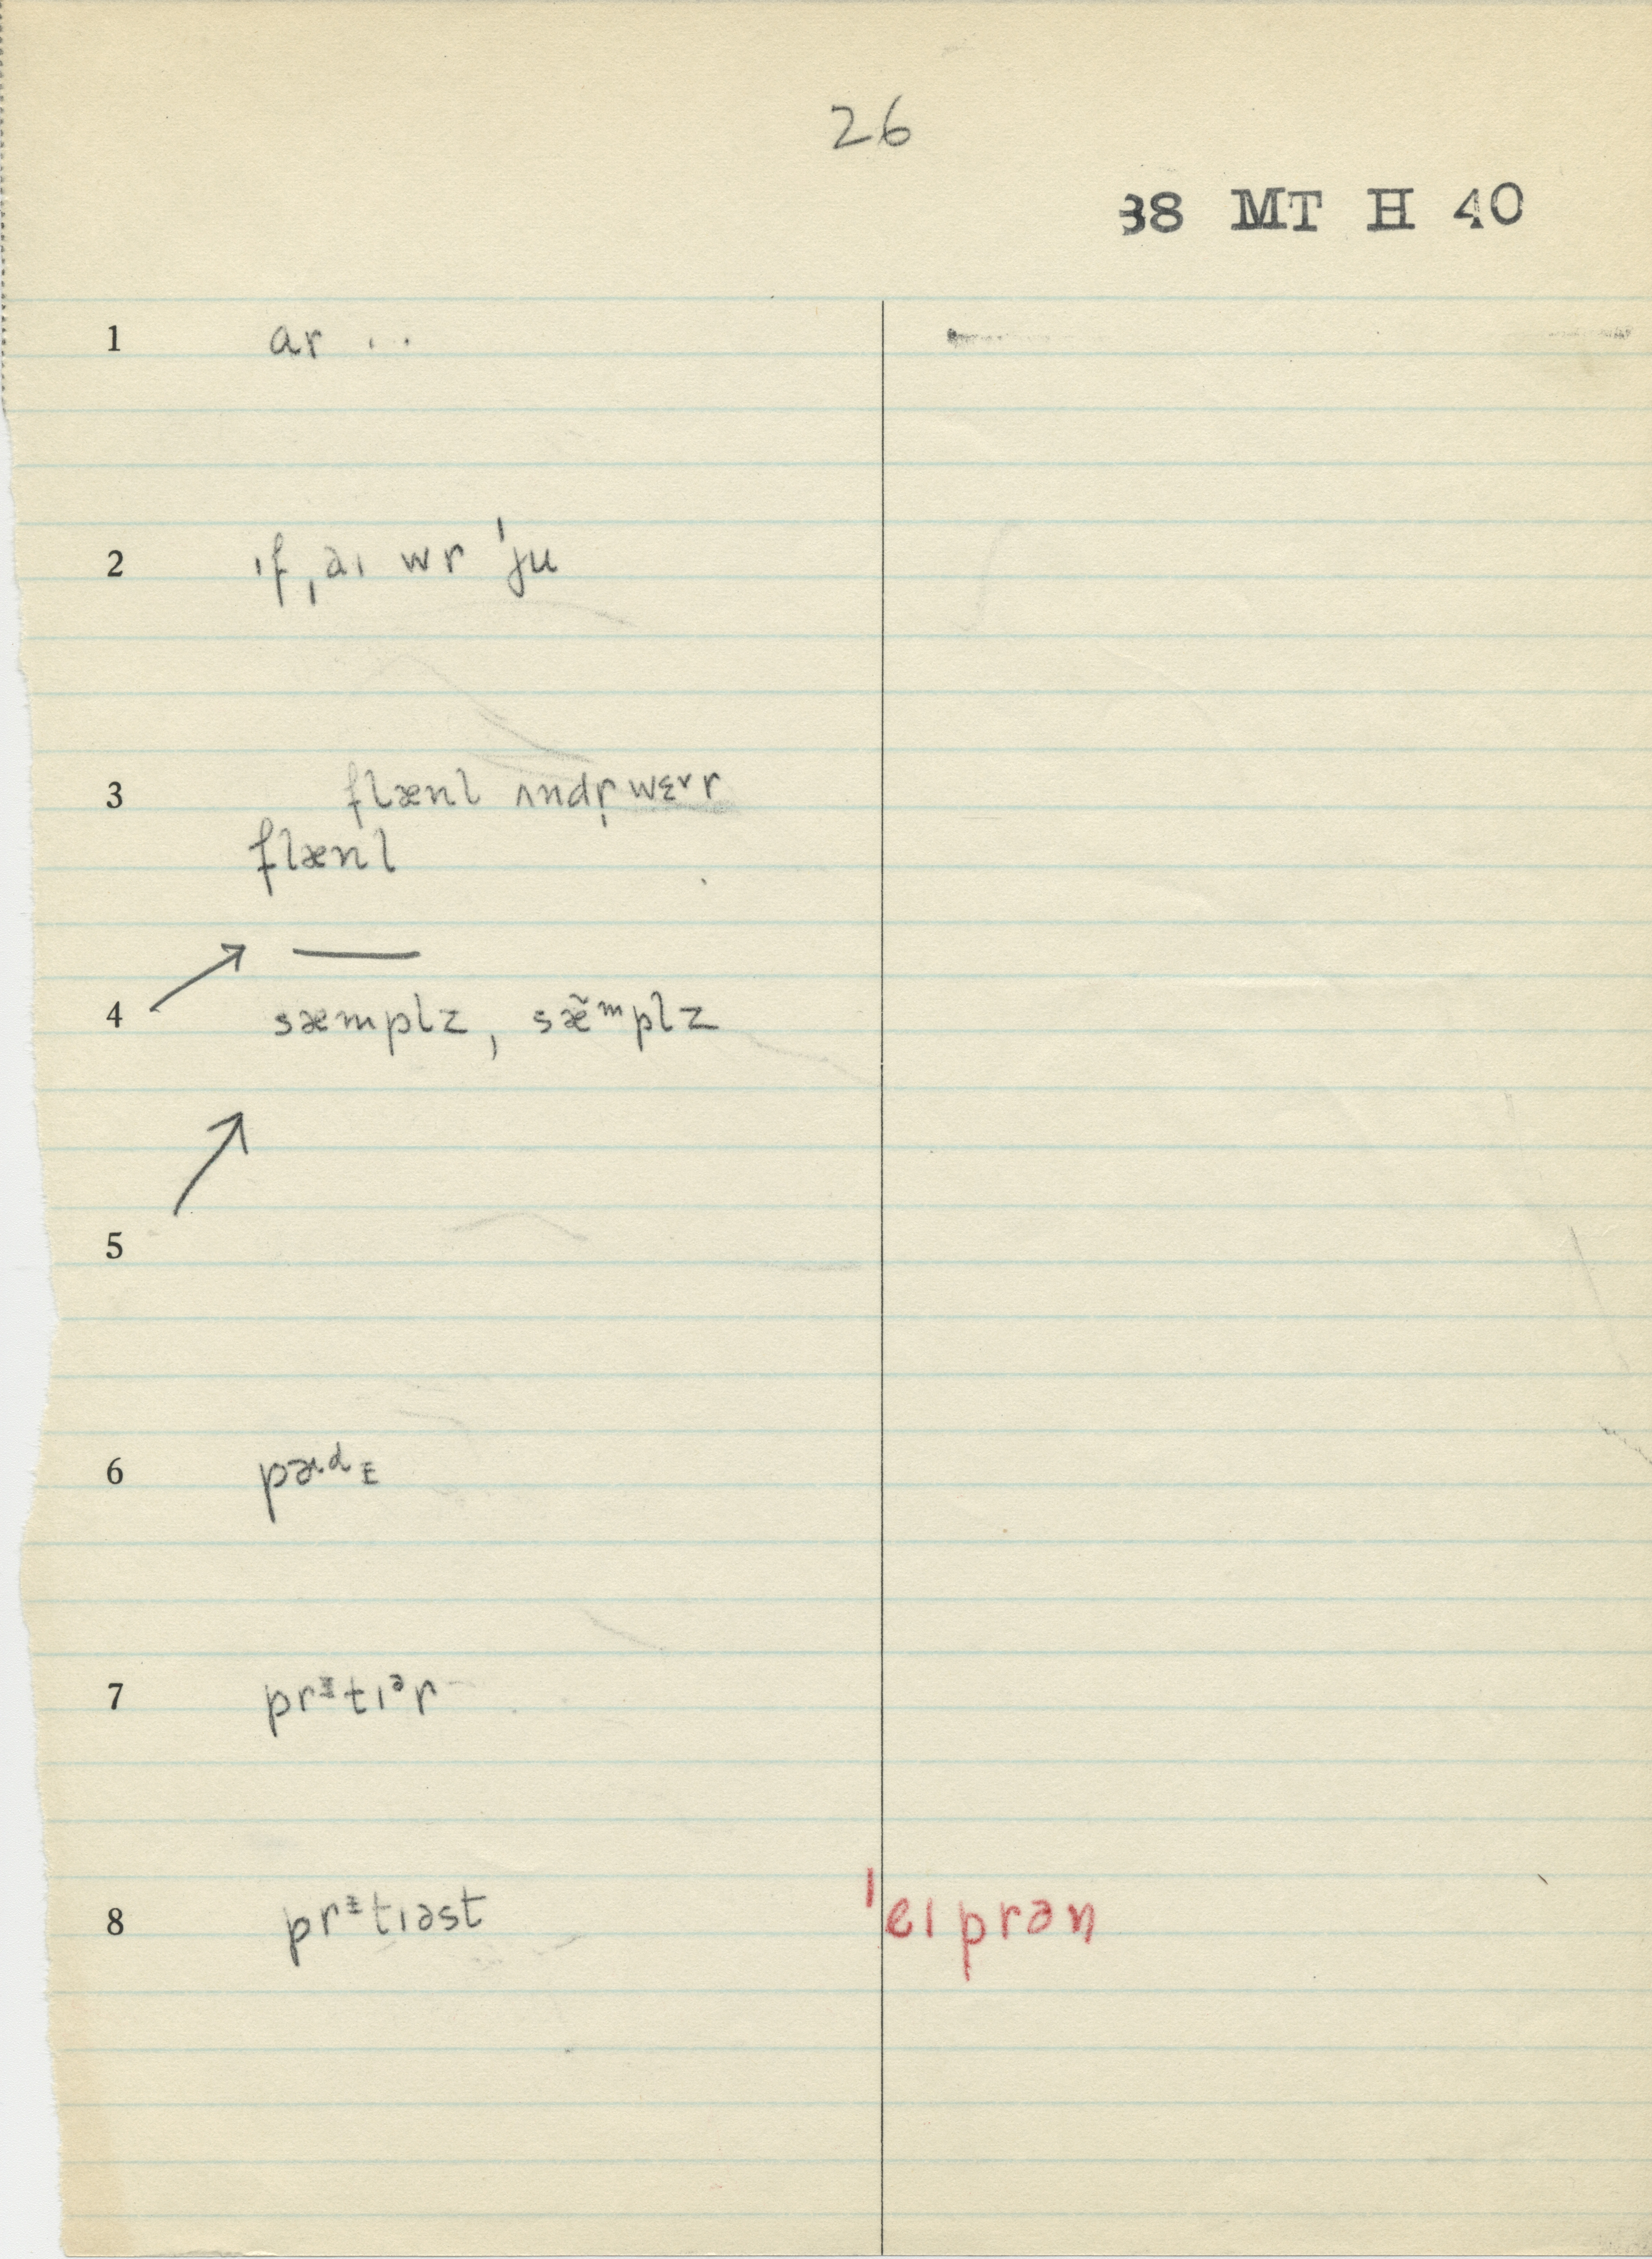 26
38 MT H 40
1 ar ..
2 ıf ˌaı wr ˈju
3 flænl ʌndr̩wɛᵛr
flænl
4 sæmplz, sæ̃ᵐplz
5
6
7 prᶤtıᵊr
8 prᶤtıəst ˈeıprən